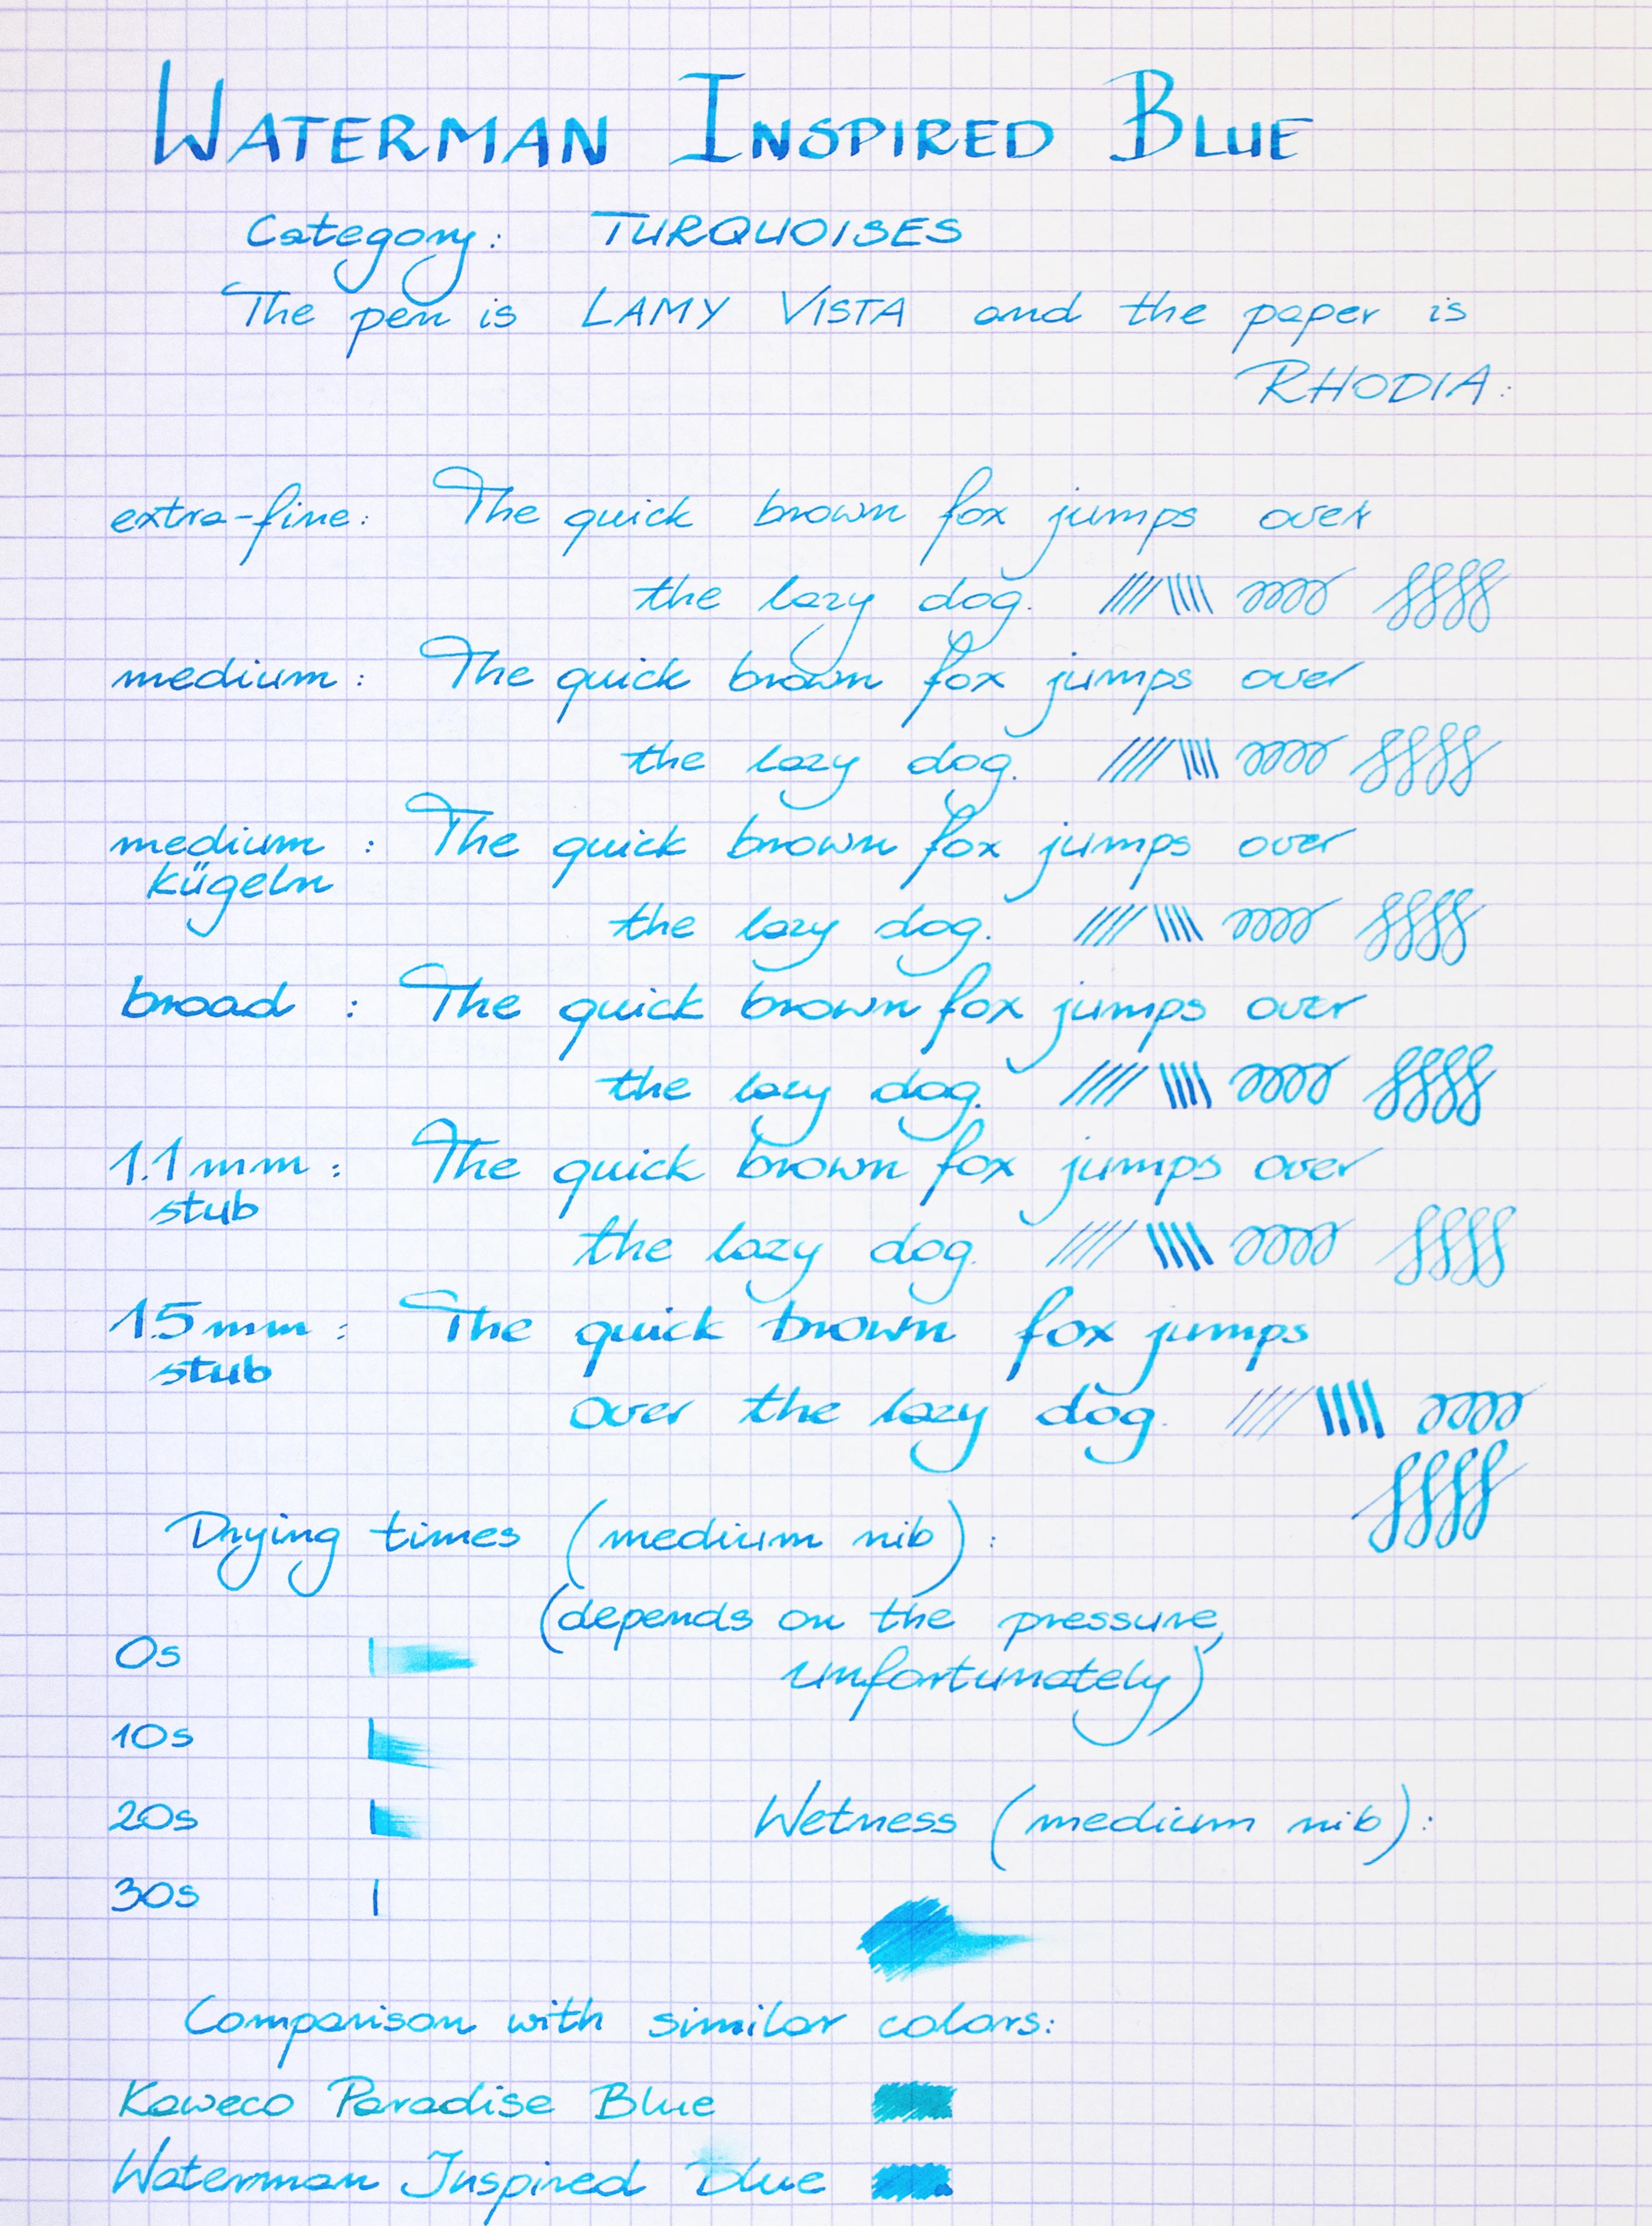 WATERMAN INSPIRED BLUE
Category: TURQUOISES
The pen is LAMY VISTA and the paper is
RHODIA:
extra-fine: The quick brown fox jumps over
the lazy dog.
medium: The quick brown fox jumps over
the lazy dog.
medium : The quick brown fox jumps over
kügeln
the lazy dog.
broad : The quick brown fox jumps over
the lazy dog.
1.1mm : The quick brown fox jumps over
stub
the lazy dog.
1.5mm : The quick brown fox jumps
stub
over the lazy dog.
Drying times (medium nib):
(depends on the pressure,
0s
unfortunately)
10s
20s Wetness (medium nib):
30s
Comparison with similar colors:
Kaweco Paradise Blue
Waterman Inspired Blue